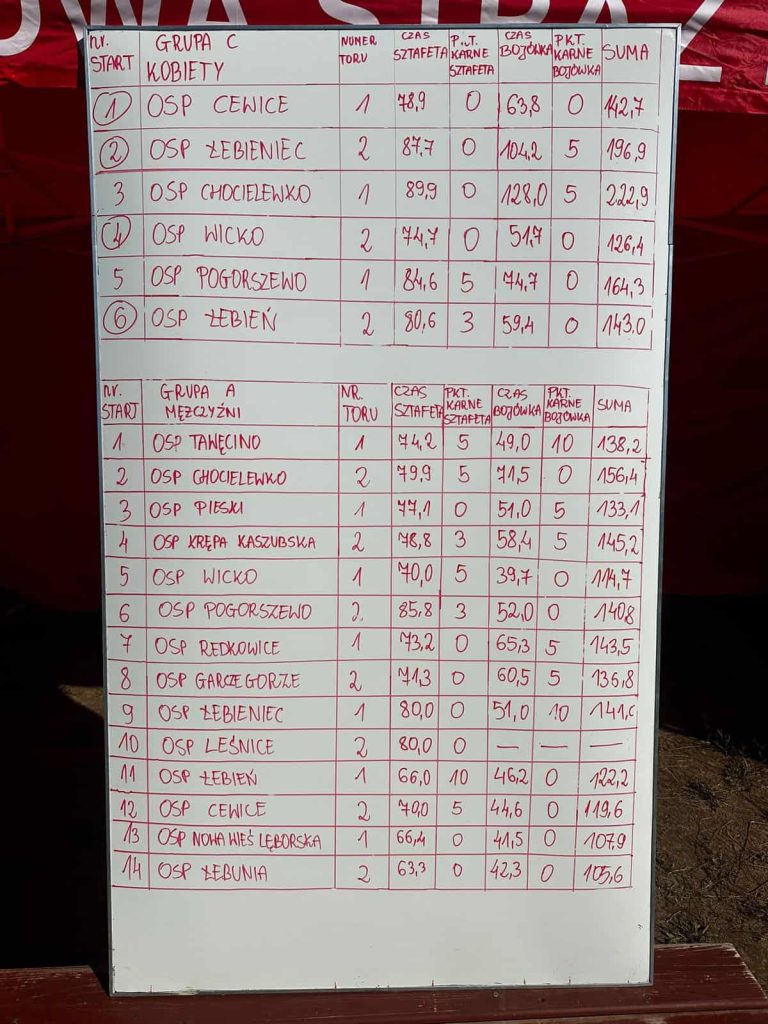 OWA STRAŻ
nr. START GRUPA C KOBIETY NUMER TORU CZAS SZTAFETA P.T. KARNE SZTAFETA CZAS BOJÓWKA PKT. KARNE BOJÓWKA SUMA
1 OSP CEWICE 1 78,9 0 63,8 0 142,7
2 OSP ŁEBIENIEC 2 87,7 0 104,2 5 196,9
3 OSP CHOCIELEWKO 1 89,9 0 128,0 5 222,9
4 OSP WICKO 2 74,7 0 51,7 0 126,4
5 OSP POGORSZEWO 1 84,6 5 74,7 0 164,3
6 OSP ŁEBIEŃ 2 80,6 3 59,4 0 143.0
nr. START GRUPA A MĘZCZYŹNI NR. TORU CZAS SZTAFETA PKT. KARNE SZTAFETA CZAS BOJÓWKA PKT. KARNE BOJÓWKA SUMA
1 OSP TAWĘCINO 1 74,2 5 49,0 10 138,2
2 OSP CHOCIELEWKO 2 79,9 5 71,5 0 156,4
3 OSP PIESKI 1 77,1 0 51,0 5 133,1
4 OSP KRĘPA KASZUBSKA 2 78,8 3 58,4 5 145,2
5 OSP WICKO 1 70,0 5 39,7 0 114,7
6 OSP POGORSZEWO 2 85,8 3 52,0 0 140,8
7 OSP REDKOWICE 1 73,2 0 65,3 5 143,5
8 OSP GARCZEGORZE 2 71,3 0 60,5 5 136,8
9 OSP ŁEBIENIEC 1 80,0 0 51,0 10
10 OSP LEŚNICE 2 80,0 0 — — —
11 OSP ŁEBIEŃ 1 66,0 10 46,2 0 122,2
12 OSP CEWICE 2 70,0 5 44,6 0 119,6
13 OSP NOWA WIEŚ LĘBORSKA 1 66,4 0 41,5 0 107,9
14 OSP ŁEBUNIA 2 63,3 0 42,3 0 105,6